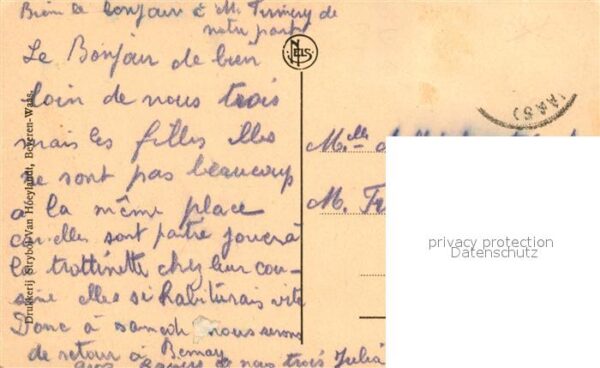 Bien le bonjour à M. de
notre part
Le Bonjour de bien
loin de nous trois
mais les filles elles
ne sont pas beaucoup
à la même place
car elles sont partie jouera
la trottinette chez leur cou-
sine elles si habiturais vite
Donc à samedi nous serons
de retour à Bernay
gros de nous trois Julia
Drukkerij Strybol-Van Hoeylandt, Beveren-Waas.
NELS
WAAS)
M.elles
M.
privacy protection
Datenschutz